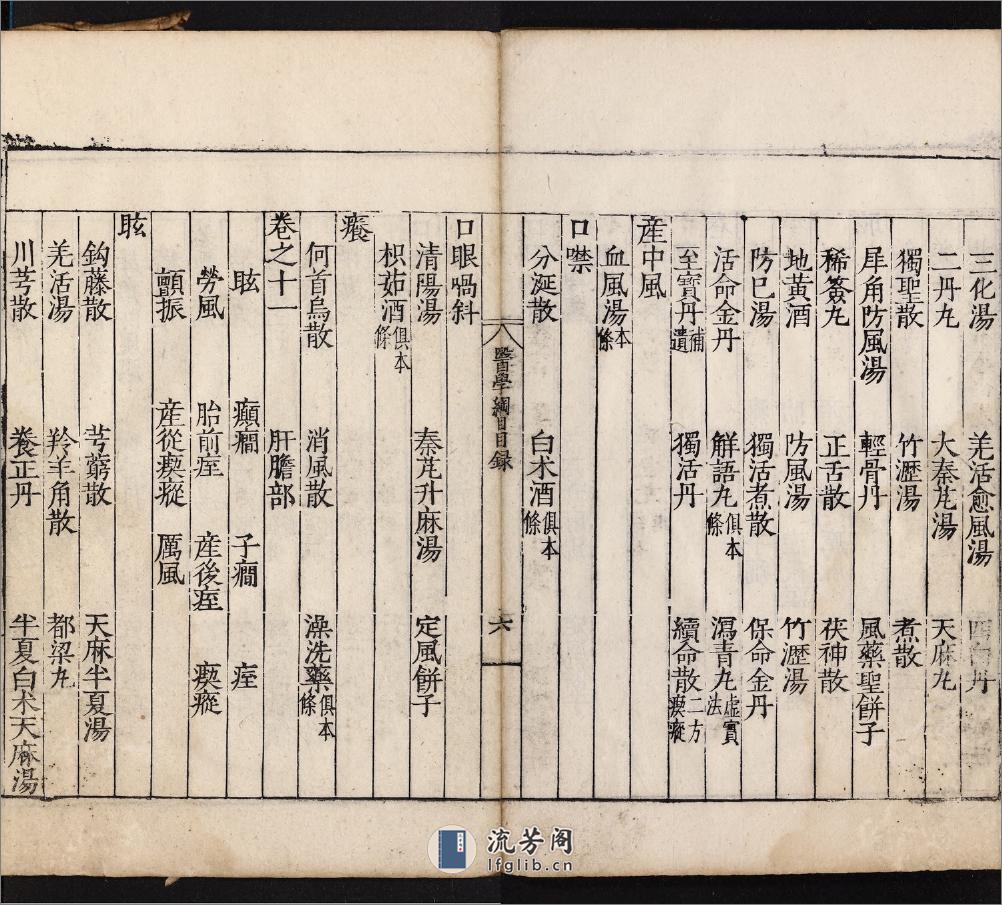 三化湯 羌活愈風湯 四白丹
二丹丸 大秦艽湯 天麻丸
獨聖散 竹瀝湯 煮散
犀角防風湯 輕骨丹 風藥聖餅子
稀簽丸 正舌散 茯神散
地黄酒 防風湯 竹瀝湯
防巳湯 獨活煮散 保命金丹
活命金丹 解語丸俱本條 瀉青丸虚實法
至寶丹補遺 獨活丹 續命散二方瘈瘲
産中風
血風湯本條
口噤
分涎散 白术酒俱本條
醫學綱目目録 六
口眼喎斜
清陽湯 秦艽升麻湯 定風餅子
枳茹酒俱本條
癢
何首烏散 消風散 澡洗藥俱本條
卷之十一 肝膽部
眩 癲癇 子癇 痓
勞風 胎前痓 産後痓 瘈瘲
顫振 産後瘈瘲 厲風
眩
鈎藤散 芎藭散 天麻半夏湯
羌活湯 羚羊角散 都梁丸
川芎散 養正丹 半夏白术天麻湯
流芳阁
lfglib.cn